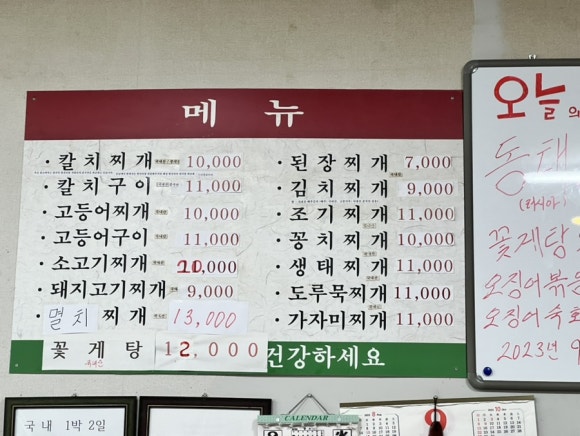 메 뉴
· 칼치찌개 10,000
· 칼치구이 11,000
· 고등어찌개 10,000
· 고등어구이 11,000
· 소고기찌개 11,000
· 돼지고기찌개 9,000
· 멸치찌개 13,000
꽃게탕 12,000
· 된장찌개 7,000
· 김치찌개 9,000
· 조기찌개 11,000
· 꽁치찌개 10,000
· 생태찌개 11,000
· 도루묵찌개 11,000
· 가자미찌개 11,000
건강하세요
오늘의
동태
(러시아)
꽃게탕
오징어볶음
오징어숙회
2023년 9
국내 1박 2일
CALENDAR